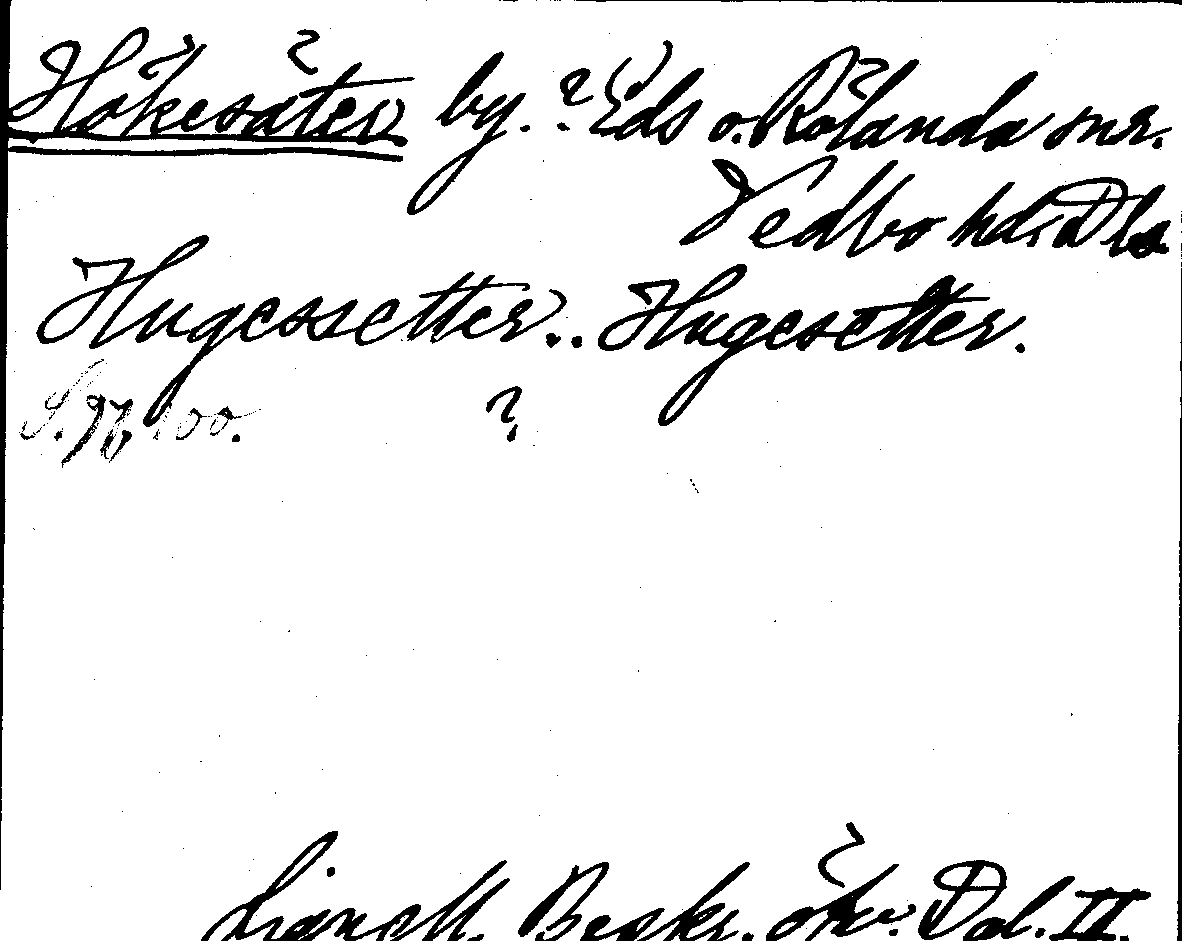 Hökesäter by. ? Eds o. Rölanda snr.
Vedbo hd. Dls.
Hugessetter.. Hugesetter.
S. 97, 100. ?
Lignell. Beskr. öfv. Dal. II.